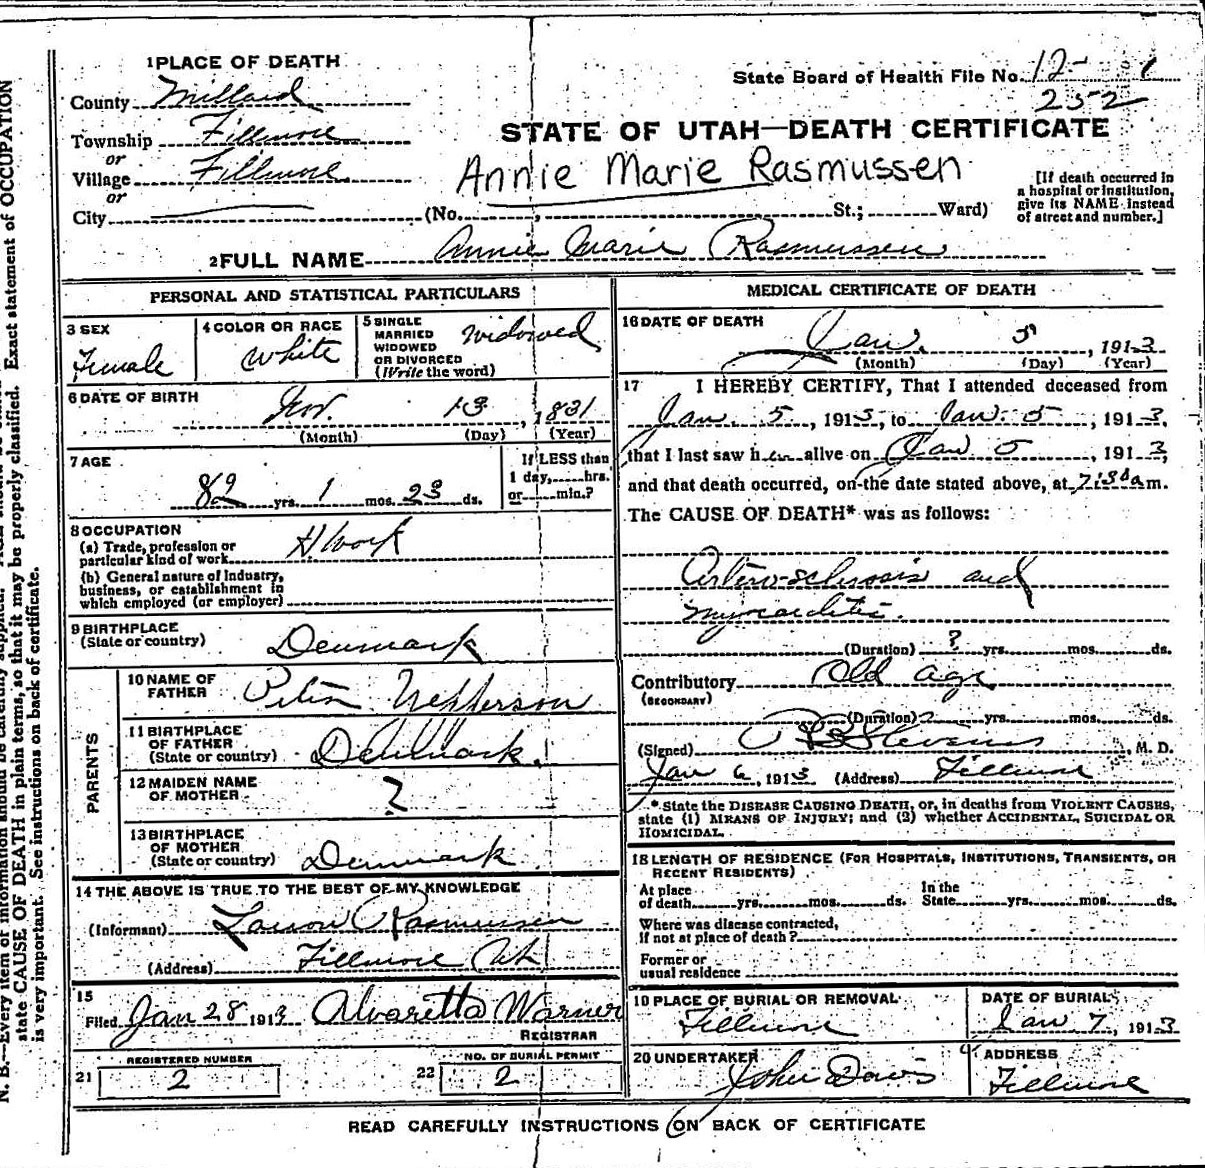 1 PLACE OF DEATH
County Millard
Township Fillmore
or
Village Fillmore
or
City
State Board of Health File No. 12
252
STATE OF UTAH—DEATH CERTIFICATE
Annie Marie Rasmussen
(No. , St.; Ward)
[If death occurred in
a hospital or institution,
give its NAME instead
of street and number.]
2 FULL NAME Annie Marie Rasmussen
PERSONAL AND STATISTICAL PARTICULARS
3 SEX
Female
4 COLOR OR RACE
White
5 SINGLE
MARRIED
WIDOWED
OR DIVORCED
(Write the word)
Widowed
6 DATE OF BIRTH
Nov. 13, 1831
(Month) (Day) (Year)
7 AGE
82 yrs. 1 mos. 23 ds.
If LESS than
1 day, hrs.
or min.?
8 OCCUPATION
(a) Trade, profession or
particular kind of work H. Work
(b) General nature of industry,
business, or establishment in
which employed (or employer)
9 BIRTHPLACE
(State or country) Denmark
PARENTS
10 NAME OF
FATHER Peter
11 BIRTHPLACE
OF FATHER
(State or country) Denmark.
12 MAIDEN NAME
OF MOTHER ?
13 BIRTHPLACE
OF MOTHER
(State or country) Denmark
14 THE ABOVE IS TRUE TO THE BEST OF MY KNOWLEDGE
(Informant) Rasmussen
(Address) Fillmore Ut
15
Filed Jan 28 1913 Alvaretta Warner
REGISTRAR
21 REGISTERED NUMBER
2
22 NO. OF BURIAL PERMIT
2
MEDICAL CERTIFICATE OF DEATH
16 DATE OF DEATH
Jan. 5, 1913
(Month) (Day) (Year)
17 I HEREBY CERTIFY, That I attended deceased from
Jan. 5, 1913, to Jan. 5, 1913,
that I last saw her alive on Jan 5, 1913,
and that death occurred, on the date stated above, at 7:30 a m.
The CAUSE OF DEATH* was as follows:
Arterio-sclerosis and
myocarditis.
(Duration) ? yrs. mos. ds.
Contributory Old age
(SECONDARY)
(Duration) ? yrs. mos. ds.
(Signed) Stevens, M. D.
Jan 6, 1913 (Address) Fillmore
* State the DISEASE CAUSING DEATH, or, in deaths from VIOLENT CAUSES,
state (1) MEANS OF INJURY; and (2) whether ACCIDENTAL, SUICIDAL OR
HOMICIDAL.
18 LENGTH OF RESIDENCE (FOR HOSPITALS, INSTITUTIONS, TRANSIENTS, OR
RECENT RESIDENTS)
At place
of death yrs. mos. ds.
In the
State yrs. mos. ds.
Where was disease contracted,
if not at place of death?
Former or
usual residence
19 PLACE OF BURIAL OR REMOVAL
Fillmore
DATE OF BURIAL
Jan 7, 1913
20 UNDERTAKER
John Davis
ADDRESS
Fillmore
READ CAREFULLY INSTRUCTIONS ON BACK OF CERTIFICATE
N. B.—Every item of information should be carefully supplied.
state CAUSE OF DEATH in plain terms, so that it may be properly classified. Exact statement of OCCUPATION
is very important. See instructions on back of certificate.